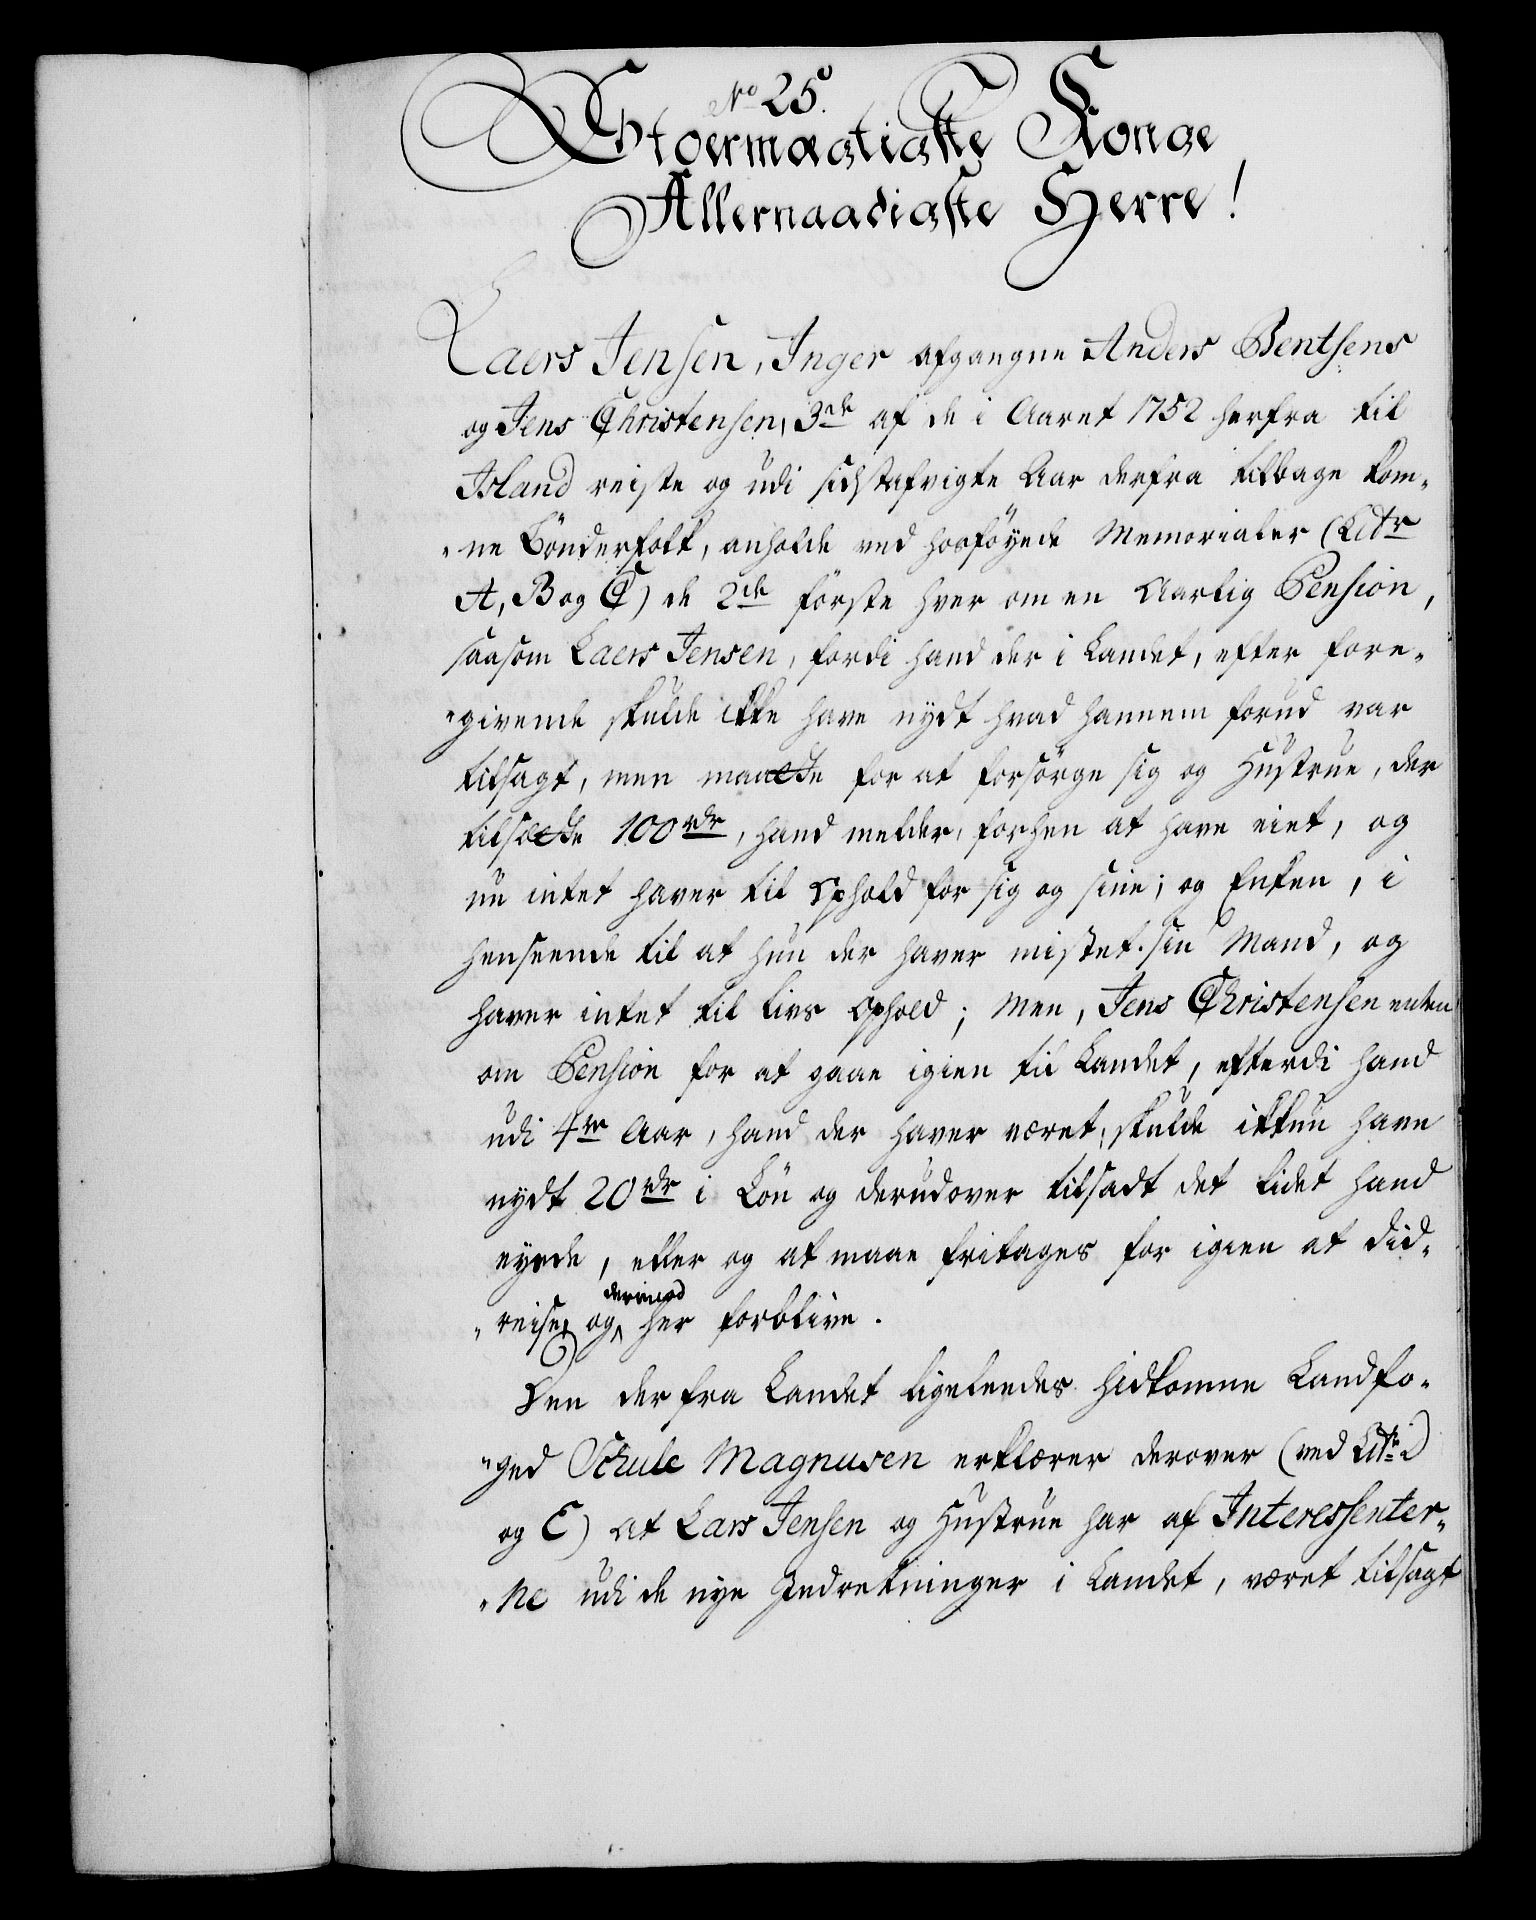 No 25.
Stoermægtigste Konge
Allernaadigste Herre!
Laers Jensen, Inger afgangne Anders Bentsens
og Jens Christensen, 3de af de i Aaret 1752 herfra til
Island reiste og udi sidstafvigte Aar derfra tilbage kom-
"ne Bönderfolk, anholde ved hosföyede Memorialer (Litr
A, B og C) de 2de förste hver om en Aarlig Pension,
saasom Laers Jensen, fordi hand der i Landet, efter fore-
"givende skulde ikke have nydt hvad hannem forud var
tilsagt, men maatte for at forsörge sig og Hustrue, der
tilsætte 100 rdr, hand melder, forhen at have eiet, og
nu intet haver til Ophold for sig og sine; og Enken, i
henseende til at hun der haver mistet sin Mand, og
haver intet til livs Ophold; Men, Jens Christensen enten
om Pension for at gaae igien til Landet, efterdi hand
udi 4re Aar, hand der haver været, skulde ikkun have
nydt 20 rdr i Lön og derudover tilsadt det lidet hand
eyede, eller og at maae fritages for igien at did-
"reise, og derimod her forblive.
Den derfra Landet ligeleedes hidkomne Landfo-
"ged Schule Magnusen erklærer derover (ved Litr D
og E) at Lars Jensen og Hustrue har af Interessenter-
"ne udi de nye Indretninger i Landet, været tilsagt